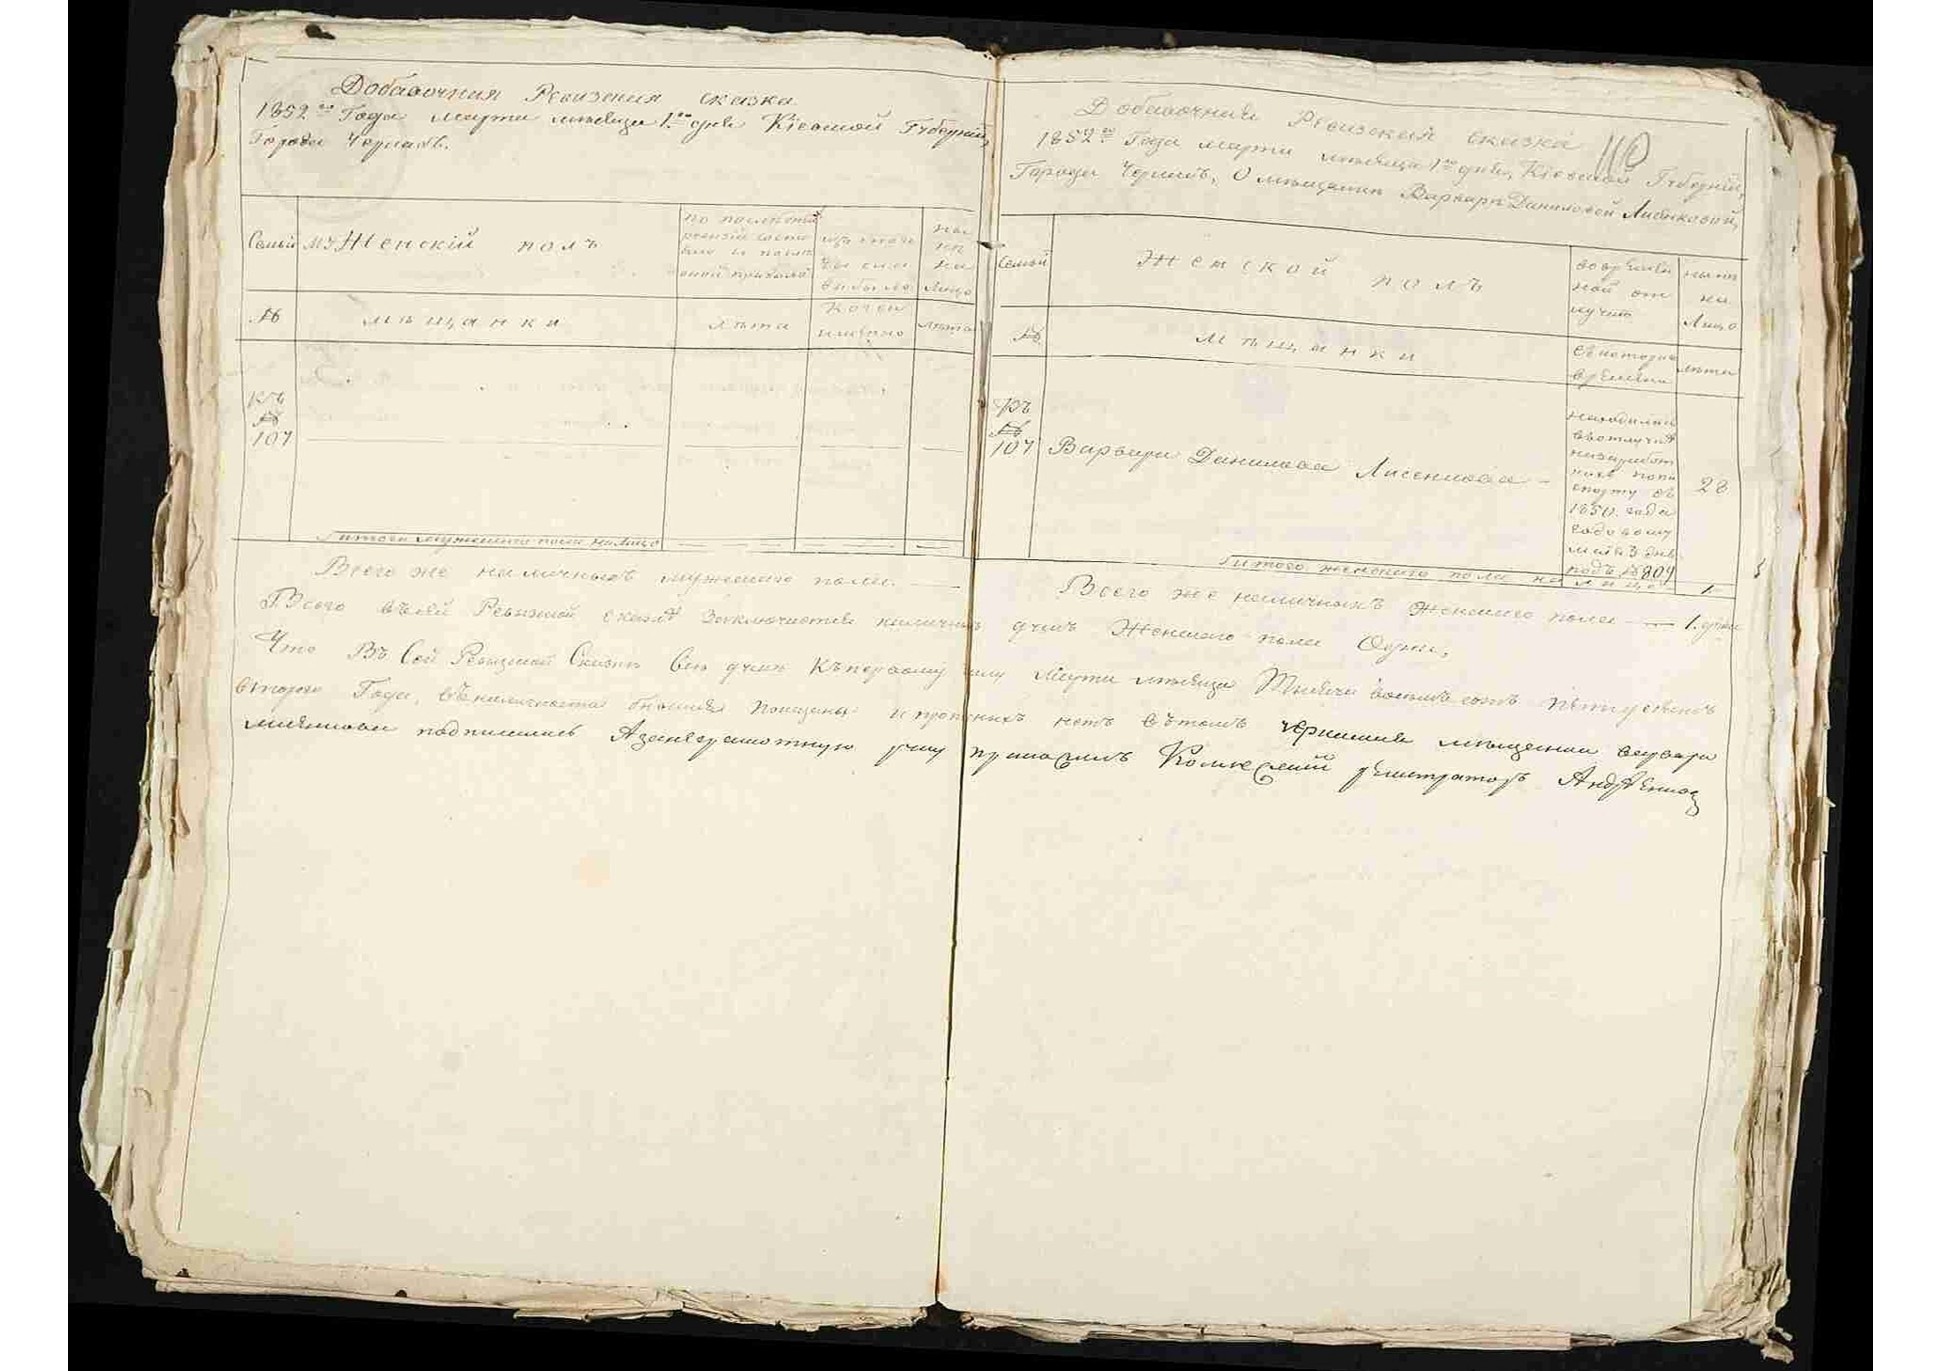 Добавочная Ревизския сказка
1852го Года марта месяца 1го дня Кіевской Губерніи,
Города Черкасъ.
Семьи Му Женскій полъ
по последней ревизіи состояло и после оной прибыло
изъ того числа выбыло
налицо
№ мѣщанки лѣта Когда именно лѣта
Къ
№
107
Итого мужескаго пола на лицо
Всего же наличныхъ мужескаго пола
Добавочная Ревизская сказка
110
1852го Года марта месяца 1го дня, Кіевской Губерніи,
Города Черкасъ, О мещанкѣ Варварѣ Даниловой Лисенковой,
Семьи Женской полъ
во временной отлучке
налицо
№ Мѣщанки
съ котораго времени
лѣта
Къ
№
107 Варвара Данилова Лисенкова — 28
находилась
в отлучкѣ
1850. года
подъ № 809
Итого женского пола на лицо 1.
Всего же наличныхъ женскаго пола — 1. душа
Всего въ сей Ревизской сказкѣ Заключается наличныхъ душъ Женскаго пола Одна,
Что Въ Сей Ревизской Сказкѣ все души Къ первому числу Марта месяца Тысяча восемь сотъ пятдесятъ
второго Года, въ наличности бывшия показаны и пропускныхъ нетъ въ томъ черкаская мещанка варвара
лисенкова подписалась А за неграмотную росписался Колежский регистраторъ